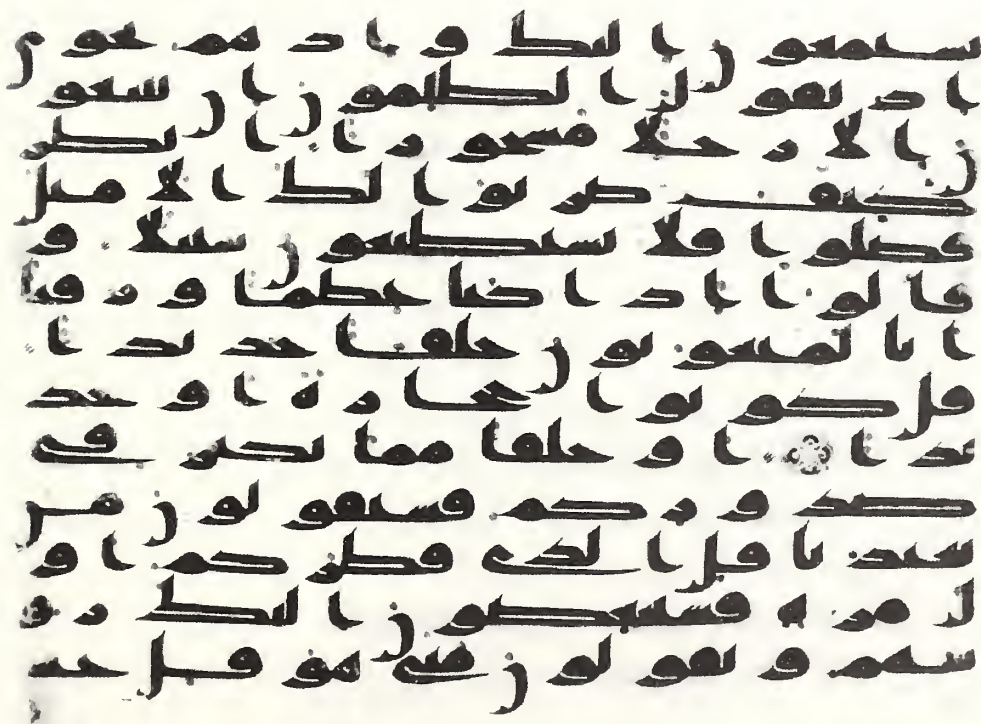 يستمعون اليك واذ هم نجوى
اذ يقول الظلمون ان تتبعو
ن الا رجلا مسحورا انظر
كيف ضربوا لك الامثل
فضلوا فلا يستطيعون سبيلا و
قالوا اذا كنا عظما ورفتا
انا لمبعوثون خلقا جديدا
قل كونوا حجارة او حد
يدا او خلقا مما يكبر في
صدوركم فسيقولون من
يعيدنا قل الذي فطركم او
ل مرة فسينغضون اليك رو
سهم ويقولون متى هو قل عس